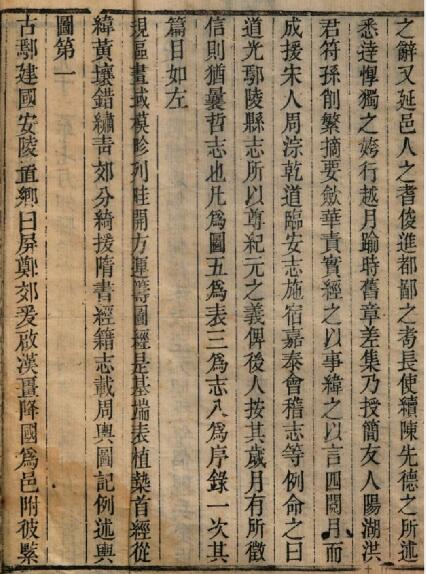 之辭又延邑人之耆俊進都鄙之耇長使續陳先德之所述
悉達惸獨之姱行越月踰時舊章差集乃授簡友人陽湖洪
君符孫創繁摘要斂華責實經之以事緯之以言四閱月而
成援宋人周淙乾道臨安志施宿嘉泰會稽志等例命之曰
道光鄢陵縣志所以尊紀元之義俾後人按其歲月有所徵
信則猶曩哲志也凡爲圖五爲表三爲志八爲序錄一次其
篇目如左
規區畫域模畛列畦開方運籌圖經是基端表植槷首經從
緯黃壤錯繡靑郊分綺援隋書經籍志載周輿圖記例述輿
圖第一
古鄢建國安陵啚鄉曰屏鄭郊爰啟漢畺降國爲邑附彼縣